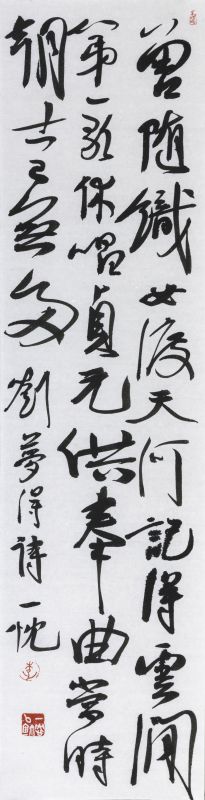 曾随織女渡天河記得雲間
第一歌休唱貞元供奉曲當時
朝士已無多 劉夢得詩 一忱
李